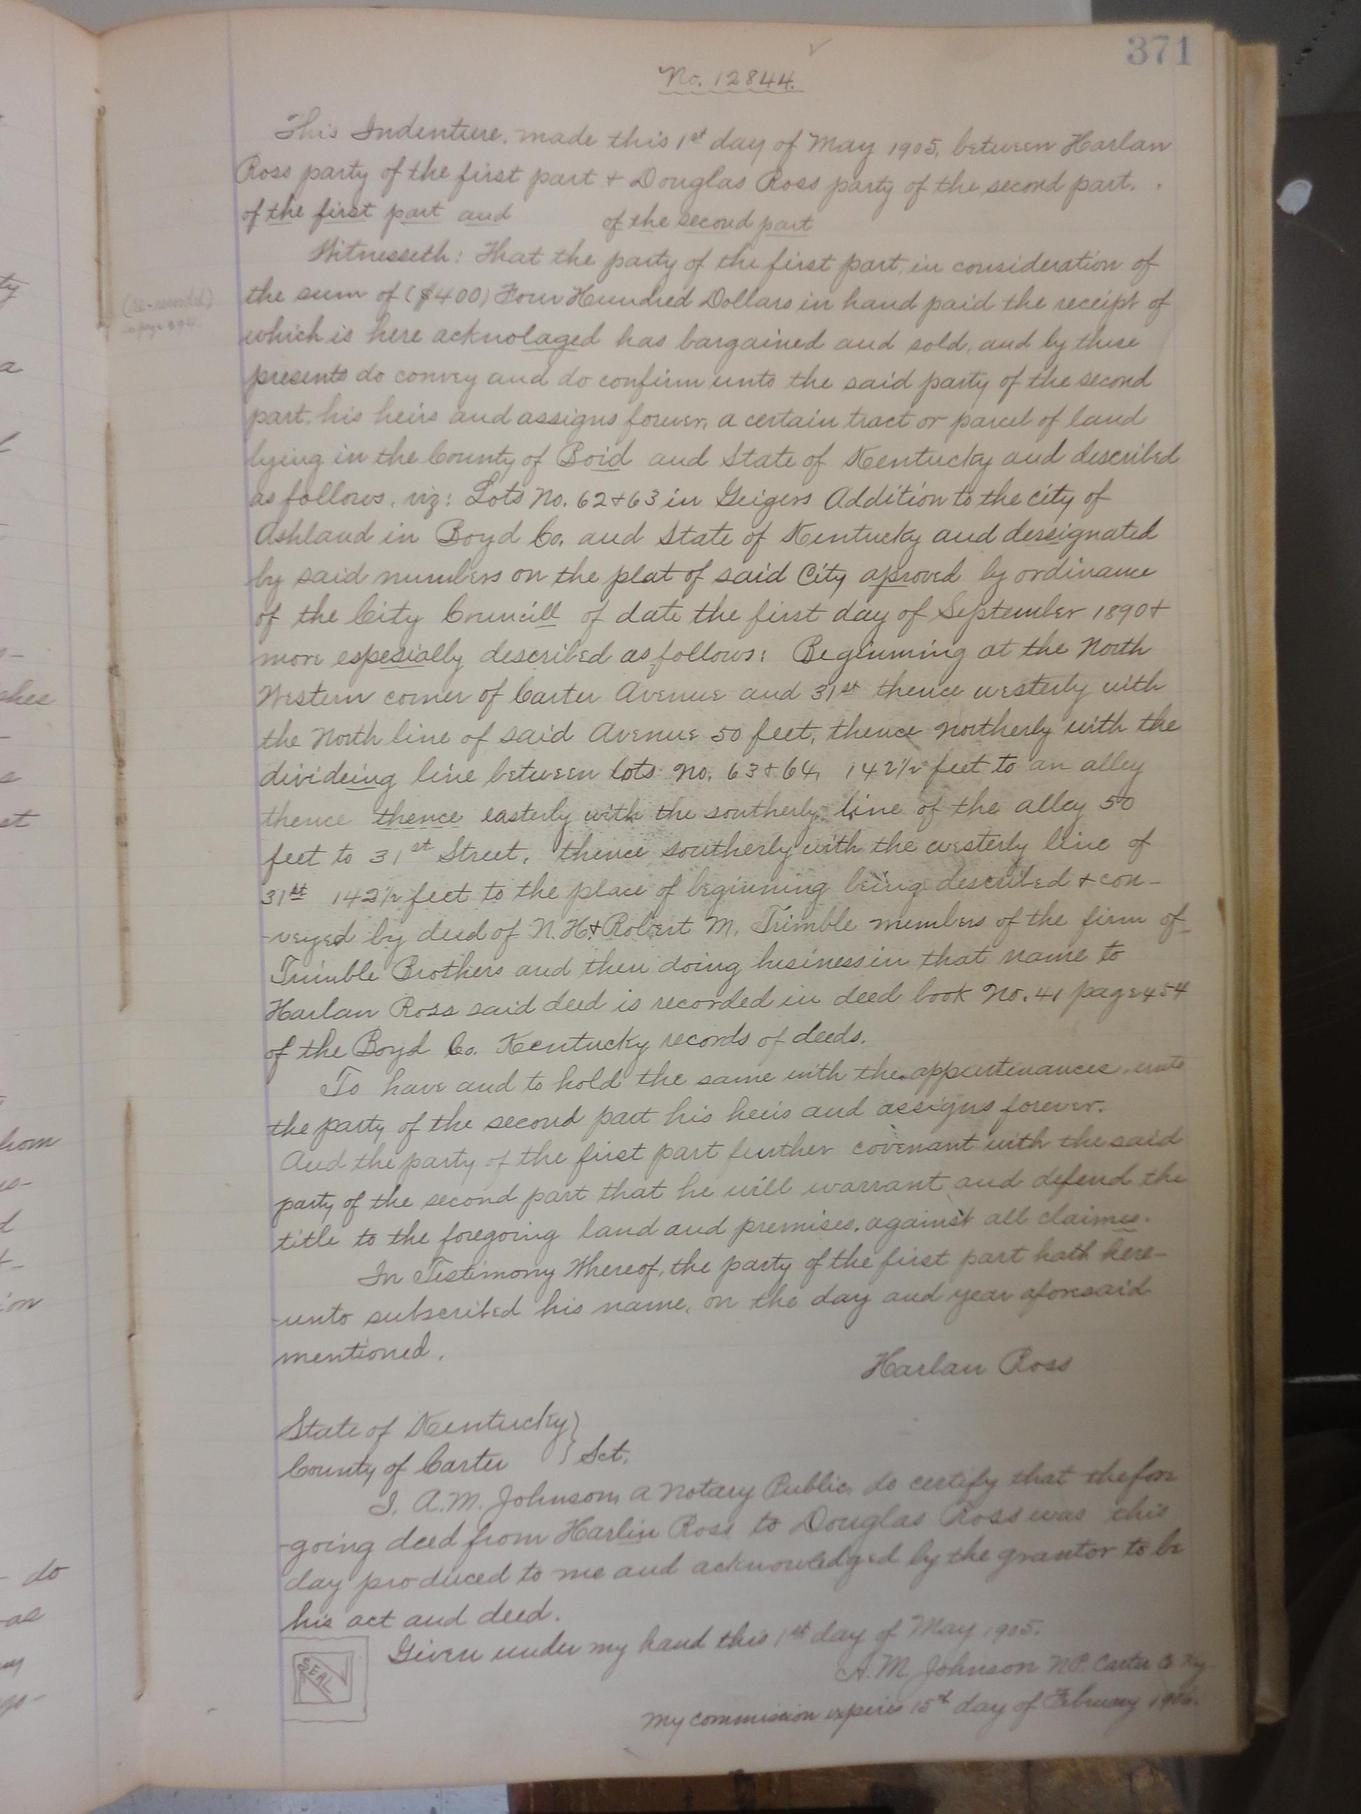 371
No. 12844.
This Indenture, made this 1st day of May 1905, between Harlan
Ross party of the first part + Douglas Ross party of the second part.
of the first part and of the second part
Witnesseth: That the party of the first part, in consideration of
the sum of ($400) Four Hundred Dollars in hand paid the receipt of
which is here acknolaged has bargained and sold, and by these
presents do convey and do confirm unto the said party of the second
part, his heirs and assigns forever, a certain tract or parcel of land
lying in the County of Boid and State of Kentucky and described
as follows, viz: Lots No. 62 + 63 in Geigers Addition to the city of
Ashland in Boyd Co. and State of Kentucky and dessignated
by said numbers on the plat of said City aproved by ordinance
of the City Councill of date the first day of September 1890 +
more espesially described as follows: Beginning at the North
Western corner of Carter Avenue and 31st thence westerly with
the North line of said Avenue 50 feet, thence northerly with the
divideing line between lots No. 63 + 64, 142 1/2 feet to an alley
thence thence easterly with the southerly line of the alley 50
feet to 31st Street, thence southerly with the westerly line of
31st 142 1/2 feet to the place of beginning being described + con-
-veyed by deed of N. H. + Robert M. Trimble members of the firm of
Trimble Brothers and then doing business in that name to
Harlan Ross said deed is recorded in deed book No. 41 page 454
of the Boyd Co. Kentucky records of deeds.
To have and to hold the same with the appurtenances unto
the party of the second part his heirs and assigns forever.
And the party of the first part further covenant with the said
party of the second part that he will warrant and defend the
title to the foregoing land and premises, against all claimes.
In Testimony Whereof, the party of the first part hath here-
-unto subscribed his name, on the day and year aforesaid
mentioned.
Harlan Ross
State of Kentucky }
County of Carter } Sct.
I, A. M. Johnson, a Notary Public, do certify that the fore
-going deed from Harlin Ross to Douglas Ross was this
day produced to me and acknowledged by the grantor to be
his act and deed.
Given under my hand this 1st day of May 1905.
SEAL
A. M. Johnson N.P. Carter Co Ky
My commission expires 15th day of February 1906.